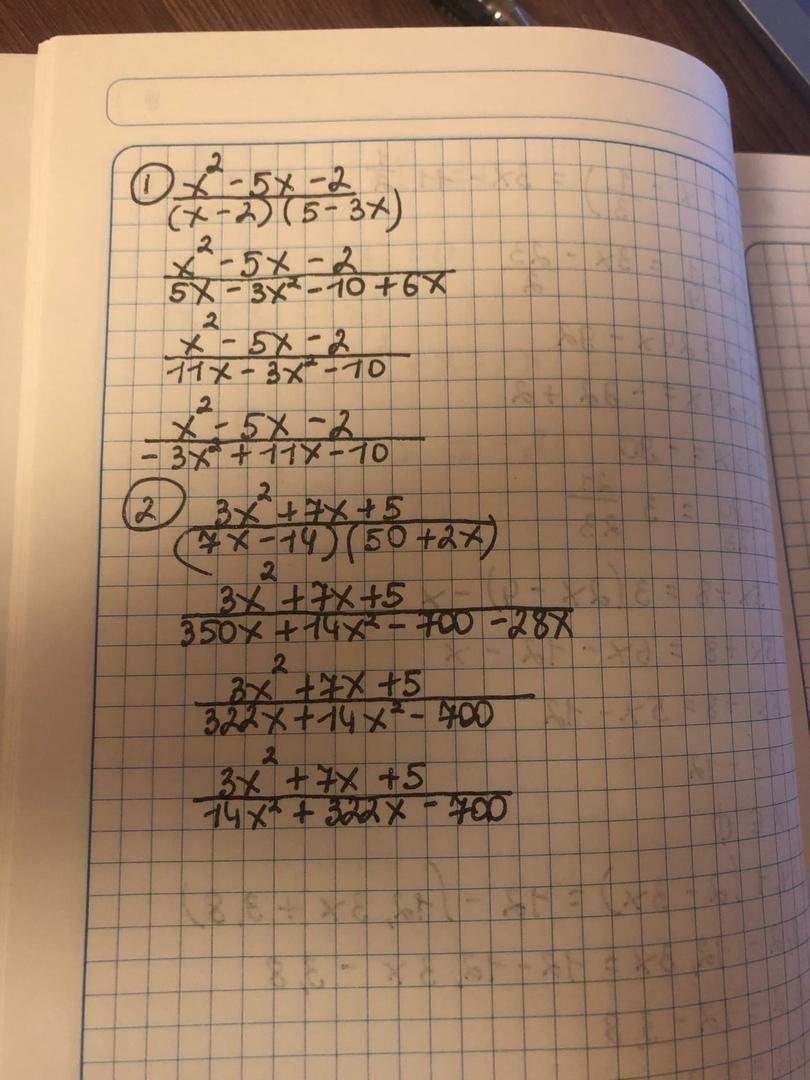 ① x² - 5x - 2
(x - 2)(5 - 3x)
x² - 5x - 2
5x - 3x² - 10 + 6x
x² - 5x - 2
11x - 3x² - 10
x² - 5x - 2
- 3x² + 11x - 10
② 3x² + 7x + 5
(7x - 14)(50 + 2x)
3x² + 7x + 5
350x + 14x² - 700 - 28x
3x² + 7x + 5
322x + 14x² - 700
3x² + 7x + 5
14x² + 322x - 700